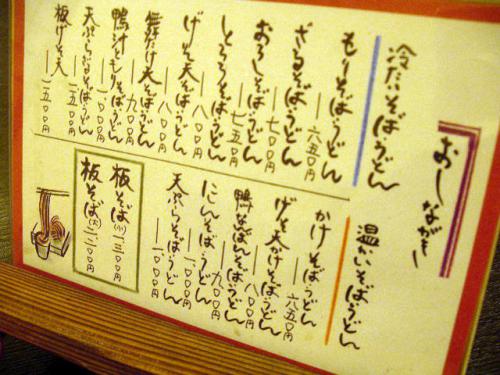 おしながき
冷たいそばうどん
もりそばうどん 六五〇円
ざるそばうどん 七〇〇円
おろしそばうどん 七五〇円
とろろそばうどん 八〇〇円
げそ天そばうどん 八〇〇円
舞茸天そばうどん 九〇〇円
鴨汁もりそばうどん
天ぷらざるそばうどん 一五〇〇円
板げそ天 一五〇〇円
温かいそばうどん
かけそばうどん 六五〇円
げそ天かけそばうどん 八〇〇円
鴨なんばんそばうどん 九〇〇円
にしんそばうどん 一〇〇〇円
天ぷらそばうどん 一〇〇〇円
板そば(小) 一三〇〇円
板そば(大) 二二〇〇円